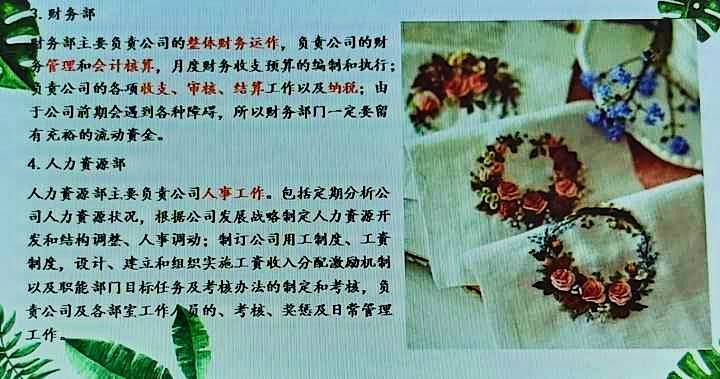 3. 财务部
财务部主要负责公司的整体财务运作，负责公司的财
务管理和会计核算，月度财务收支预算的编制和执行；
负责公司的各项收支、审核、结算工作以及纳税；由
于公司前期会遇到各种障碍，所以财务部门一定要留
有充裕的流动资金。
4. 人力资源部
人力资源部主要负责公司人事工作。包括定期分析公
司人力资源状况，根据公司发展战略制定人力资源开
发和结构调整、人事调动；制订公司用工制度、工资
制度，设计、建立和组织实施工资收入分配激励机制
以及职能部门目标任务及考核办法的制定和考核，负
责公司及各部室工作人员的、考核、奖惩及日常管理
工作。